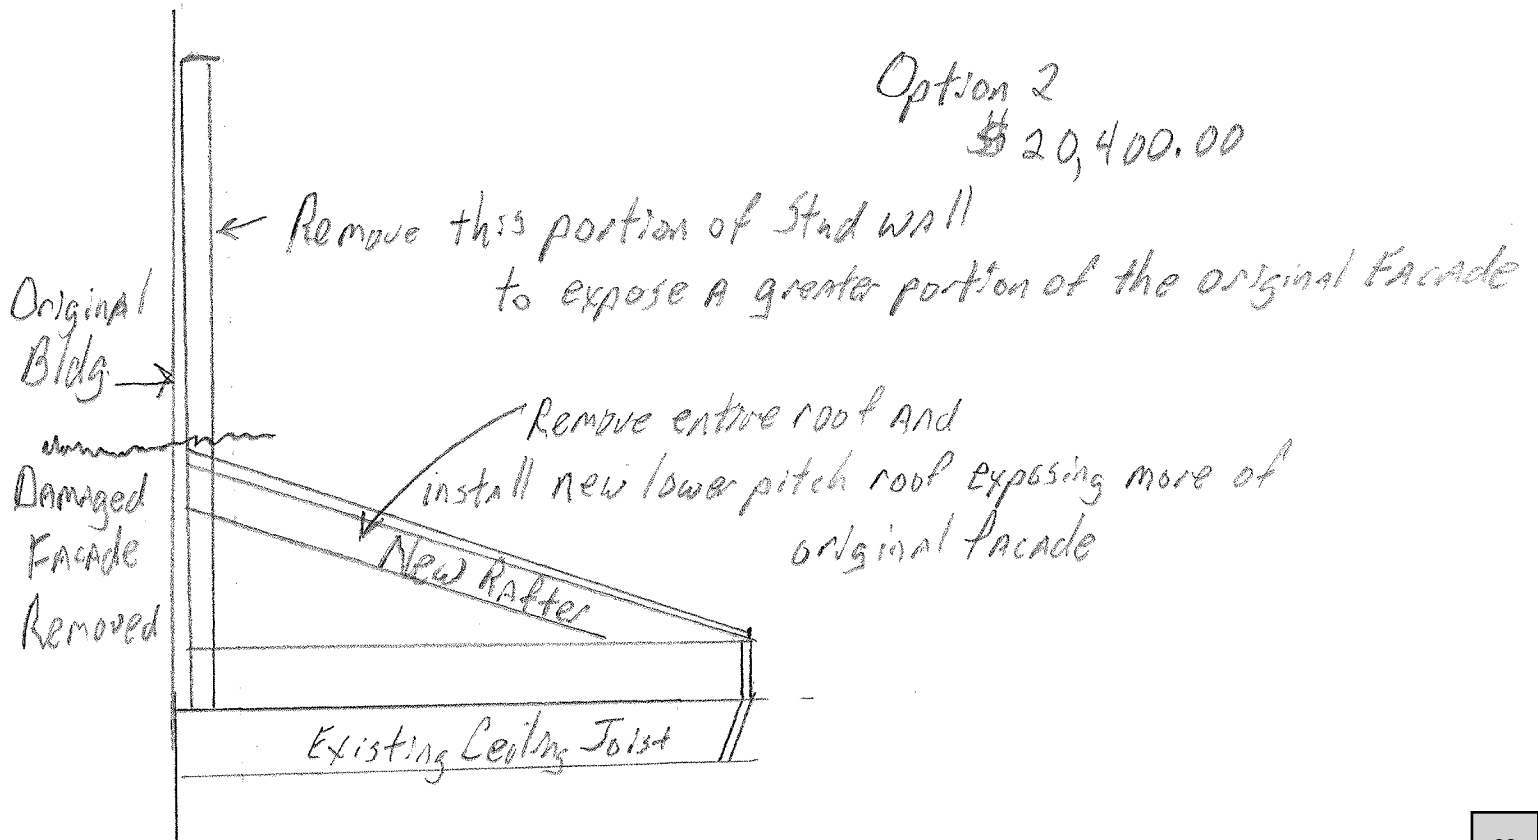 Option 2
$20,400.00
Remove this portion of Stud wall
to expose A greater portion of the original FACAde
Original
Bldg.
Remove entire roof And
install new lower pitch roof exposing more of
original facade
DAmaged
FACAde
Removed
New RAfter
Existing Ceiling Joist